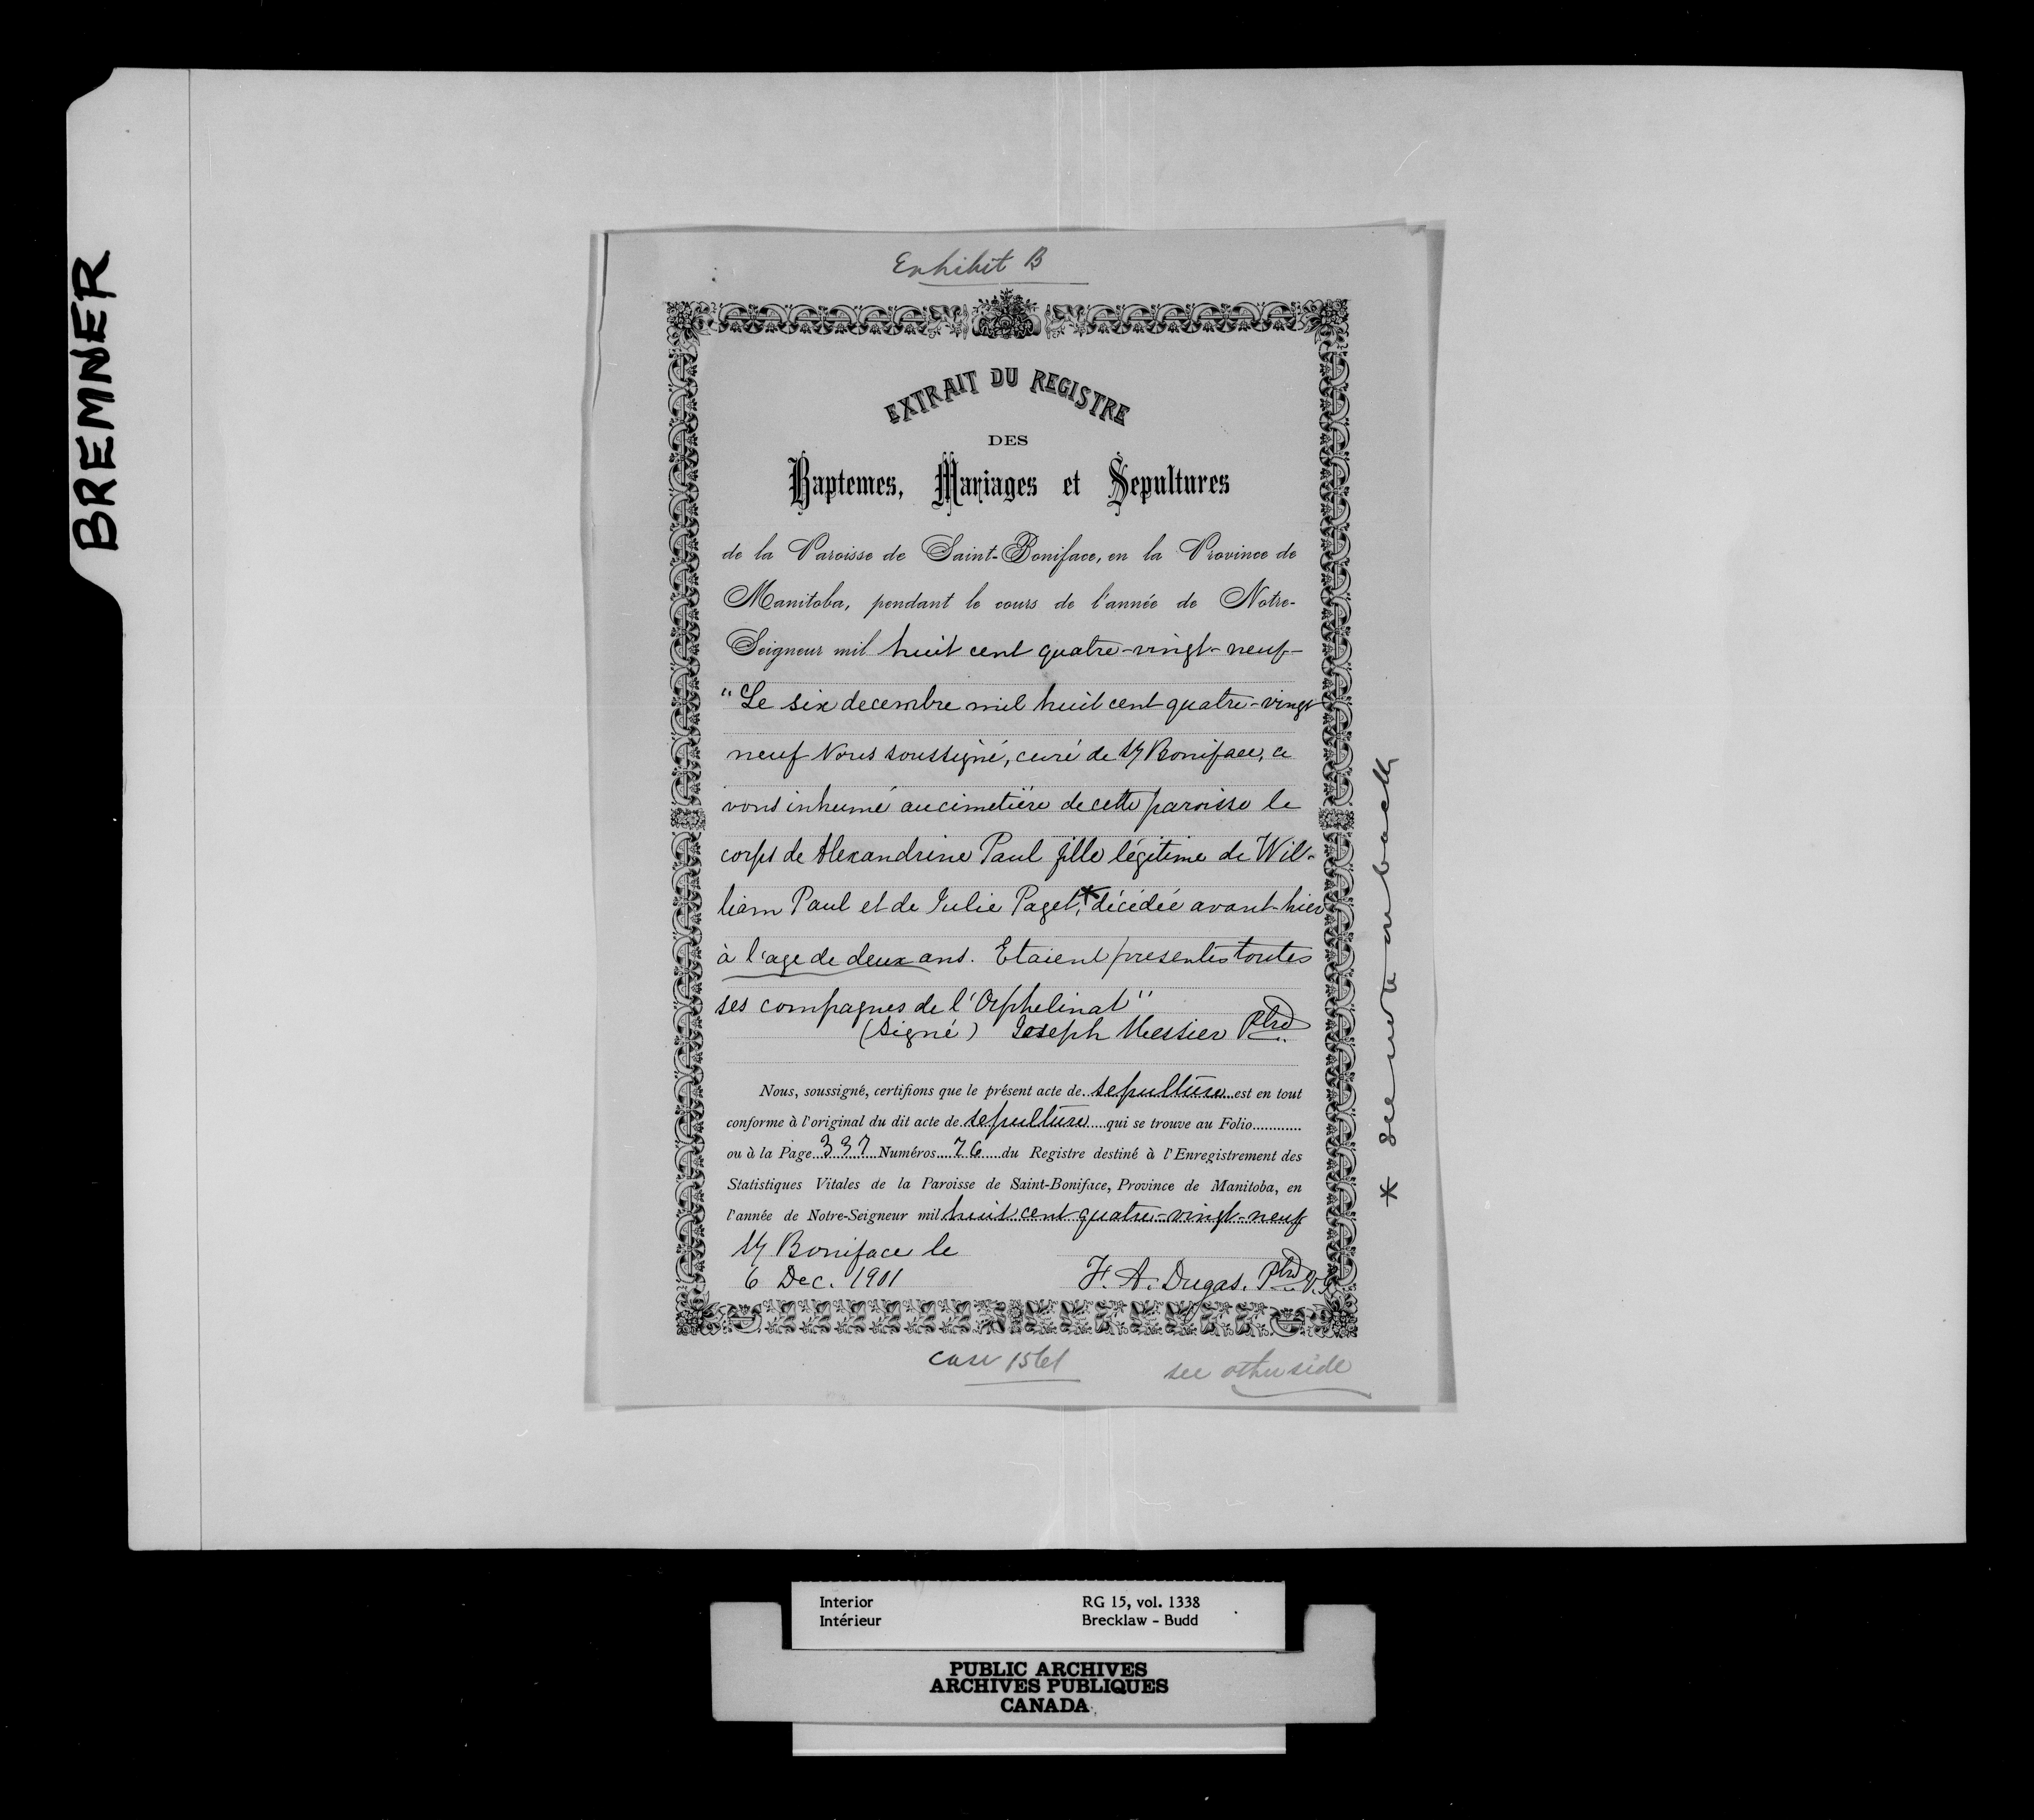 BREMNER
Exhibit B
EXTRAIT DU REGISTRE
DES
Baptemes, Mariages et Sepultures
de la Paroisse de Saint-Boniface, en la Province de
Manitoba, pendant le cours de l'année de Notre-
Seigneur mil huit cent quatre-vingt-neuf-
"Le six decembre mil huit cent quatre-vingt
neuf Nous soussigné, curé de St Boniface, a
vons inhumé au cimetière de cette paroisse le
corps de Alexandrine Paul fille légitime de Wil-
liam Paul et de Julie Paget,* décédée avant-hier
à l'age de deux ans. Etaient presentes toutes
ses compagnes de l'Orphelinat"
(Signé) Joseph Messier Ptre
Nous, soussigné, certifions que le présent acte de sepulture est en tout
conforme à l'original du dit acte de sepulture qui se trouve au Folio............
ou à la Page 337 Numéros 76 du Registre destiné à l'Enregistrement des
Statistiques Vitales de la Paroisse de Saint-Boniface, Province de Manitoba, en
l'année de Notre-Seigneur mil huit cent quatre-vingt-neuf
St Boniface le
6 Dec. 1901
F. A. Dugas. Ptre V.G.
case 1561
see other side
* see note on back
Interior
Intérieur
RG 15, vol. 1338
Brecklaw - Budd
PUBLIC ARCHIVES
ARCHIVES PUBLIQUES
CANADA